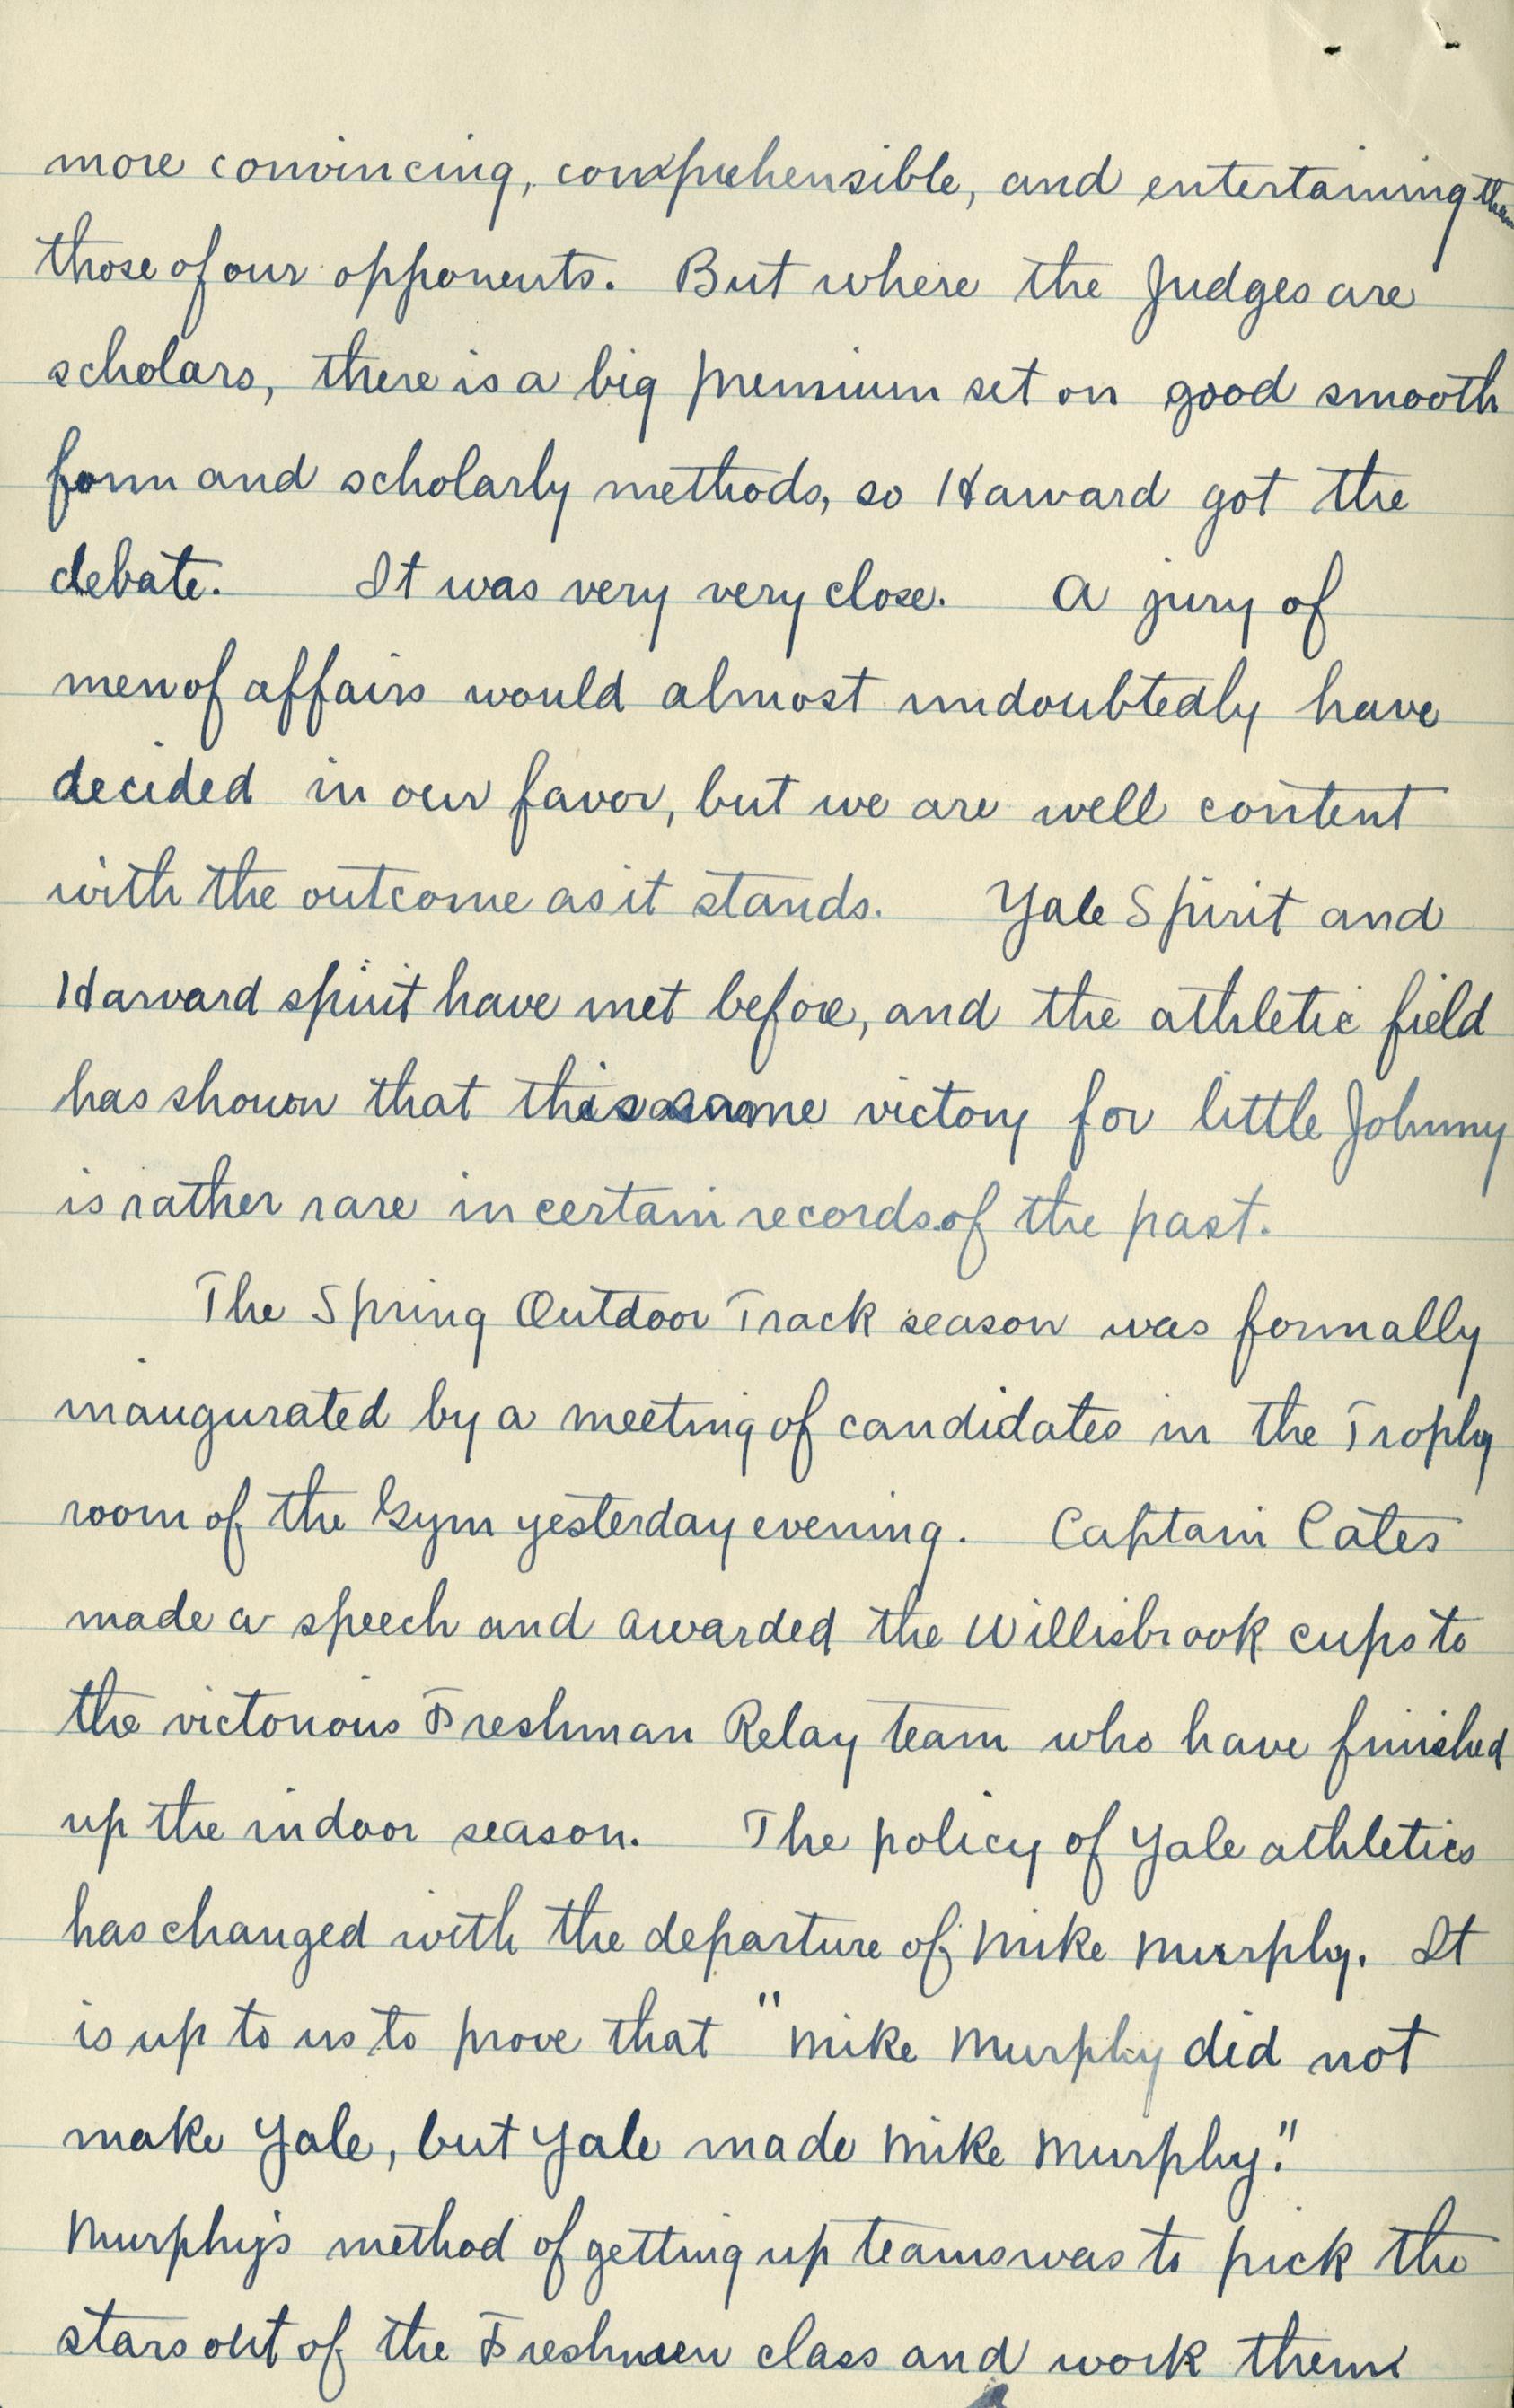 more convincing, comprehensible, and entertaining than
those of our opponents. But where the Judges are
scholars, there is a big premium set on good smooth
form and scholarly methods, so Harvard got the
debate. It was very very close. A jury of
men of affairs would almost undoubtedly have
decided in our favor, but we are well content
with the outcome as it stands. Yale Spirit and
Harvard spirit have met before, and the athletic field
has shown that this same victory for little Johnny
is rather rare in certain records of the past.
The Spring Outdoor Track season was formally
inaugurated by a meeting of candidates in the Trophy
room of the Gym yesterday evening. Captain Cates
made a speech and awarded the Willisbrook cups to
the victorious Freshman Relay team who have finished
up the indoor season. The policy of Yale athletics
has changed with the departure of Mike Murphy. It
is up to us to prove that "Mike Murphy did not
make Yale, but Yale made Mike Murphy."
Murphy's method of getting up teams was to pick the
stars out of the Freshmen class and work them